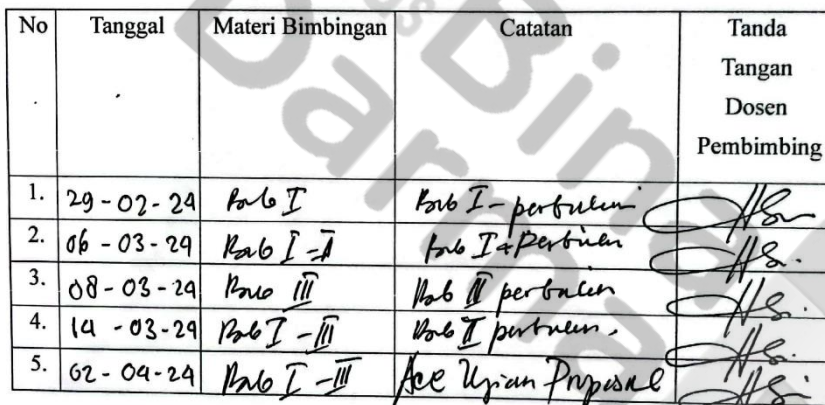 No Tanggal Materi Bimbingan Catatan Tanda
Tangan
Dosen
Pembimbing
1. 29-02-24 Bab I Bab I - perbaikan
2. 06-03-24 Bab I-II Bab I + Perbaikan
3. 08-03-24 Bab III Bab II perbaikan
4. 14-03-24 Bab I-III Bab II perbaikan.
5. 02-04-24 Bab I-III Acc Ujian Proposal
Bina
Darma